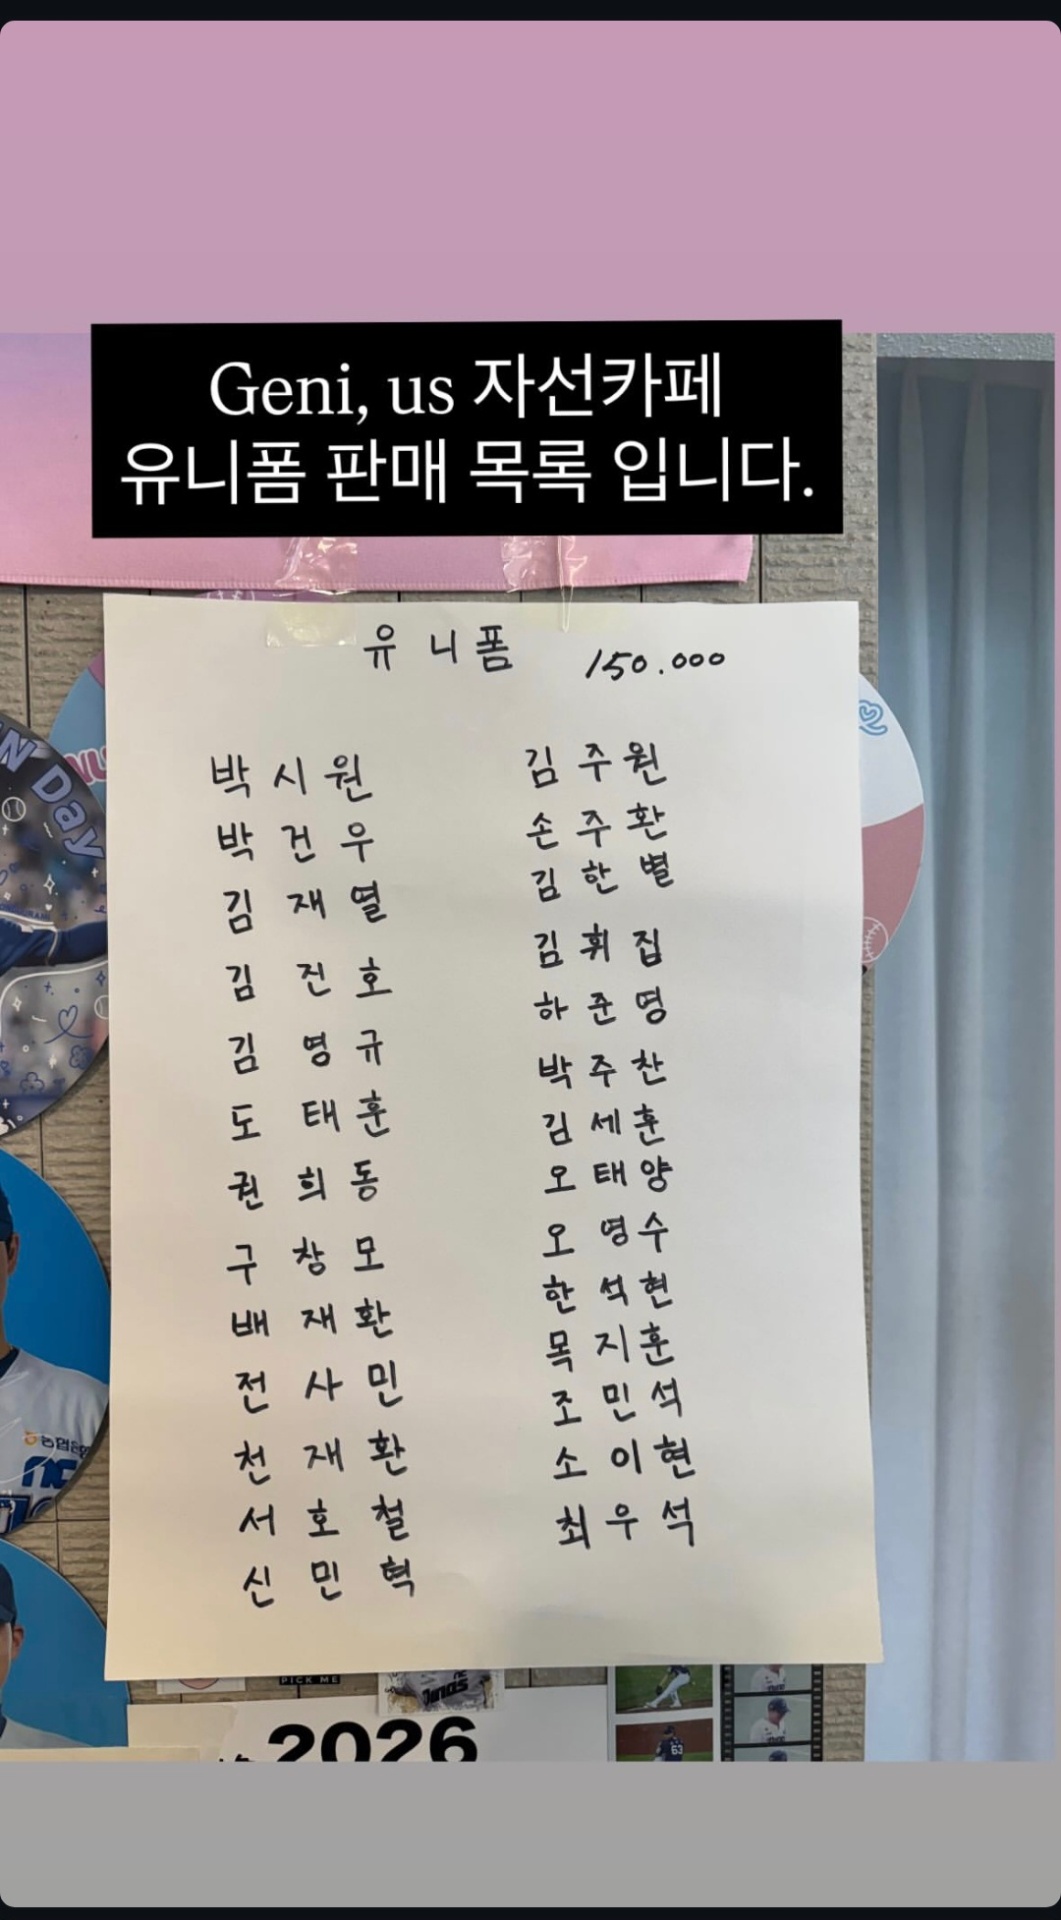 Geni, us 자선카페
유니폼 판매 목록 입니다.
유니폼 150.000
박시원
박건우
김재열
김진호
김영규
도태훈
권희동
구창모
배재환
전사민
천재환
서호철
신민혁
김주원
손주환
김한별
김휘집
하준영
박주찬
김세훈
오태양
오영수
한석현
목지훈
조민석
소이현
최우석
Day
PICK ME
2026
63